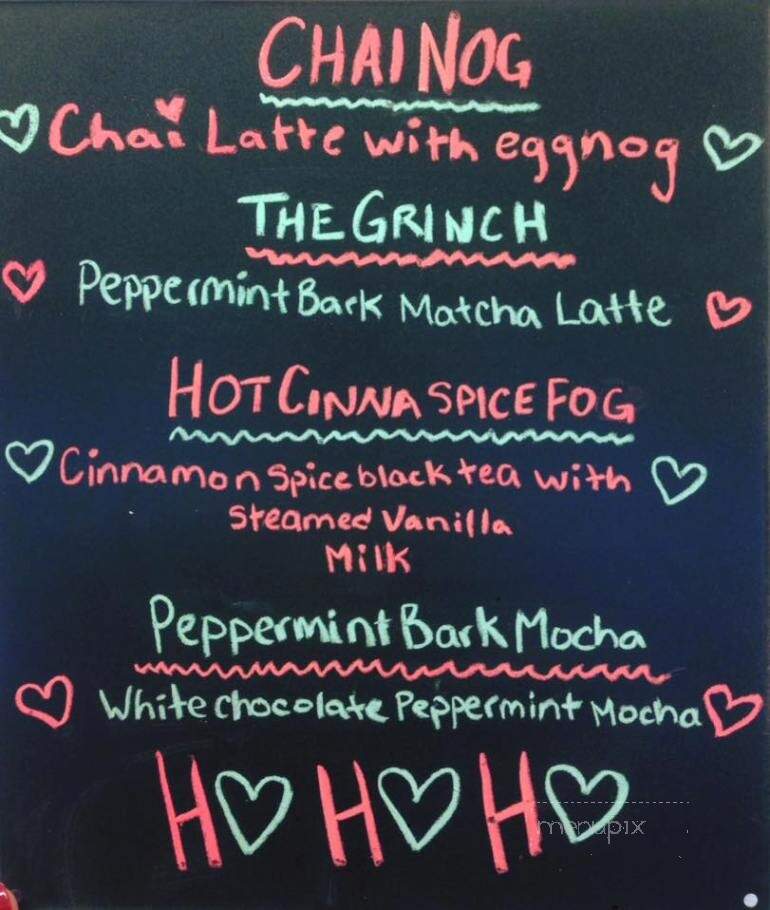 CHAI NOG
Chai Latte with eggnog
THE GRINCH
Peppermint Bark Matcha Latte
HOT CINNA SPICE FOG
Cinnamon Spice black tea with
Steamed Vanilla
Milk
Peppermint Bark Mocha
White chocolate Peppermint Mocha
H♡ H♡ H♡
menupix